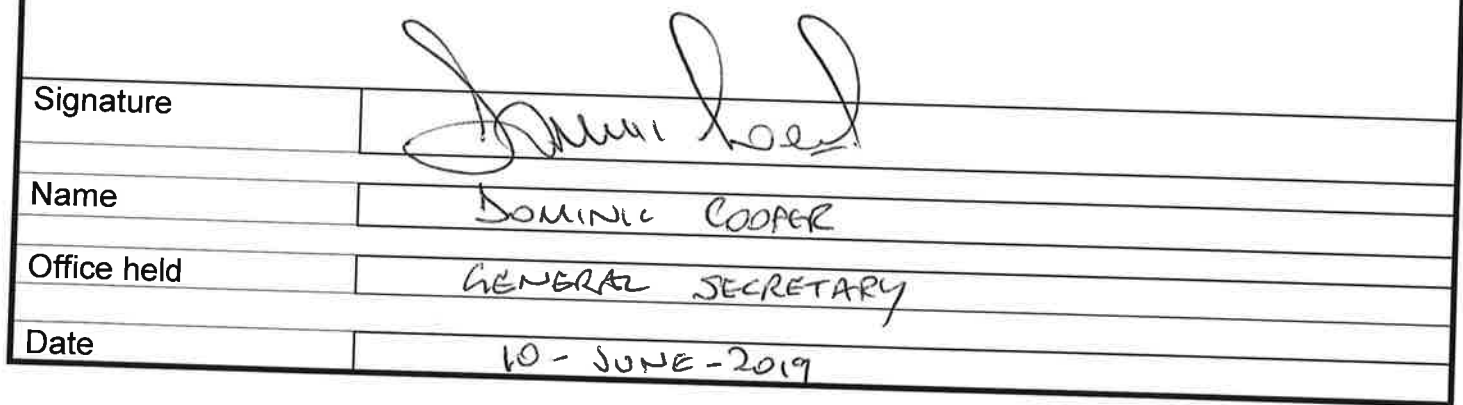 Signature
Name DOMINIC COOPER
Office held GENERAL SECRETARY
Date 10 - JUNE - 2019